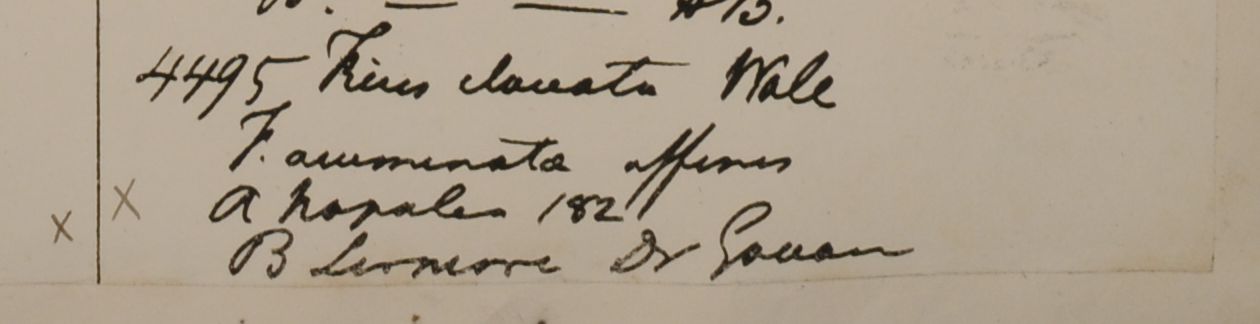 B. — — HB.
4495 Ficus clavata Wall
F. acuminata affinis
A Napalea 1821
B Sirmore Dr Govan